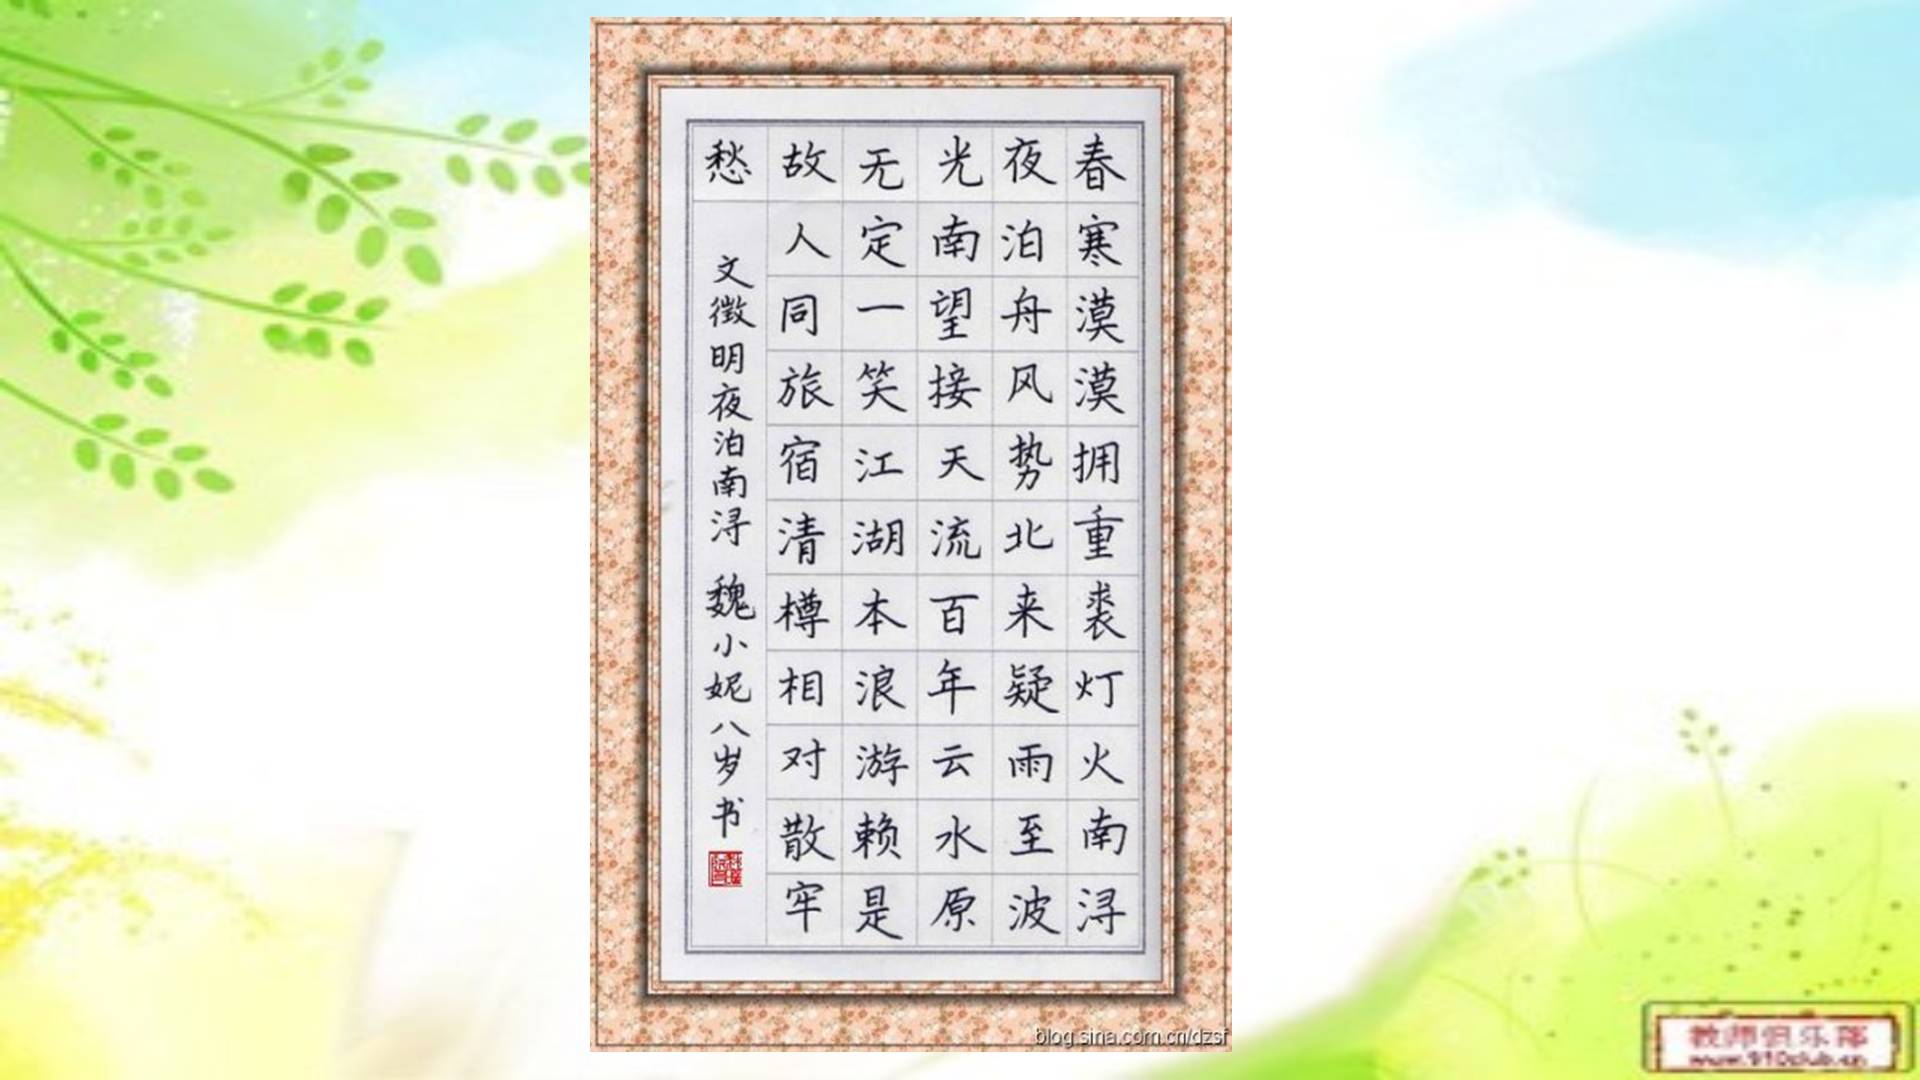 春寒漠漠拥重裘灯火南浔
夜泊舟风势北来疑雨至波
光南望接天流百年云水原
无定一笑江湖本浪游赖是
故人同旅宿清樽相对散牢
愁
文徵明夜泊南浔 魏小妮八岁书
blog.sina.com.cn/dzsf
教师俱乐部
www.910club.cn